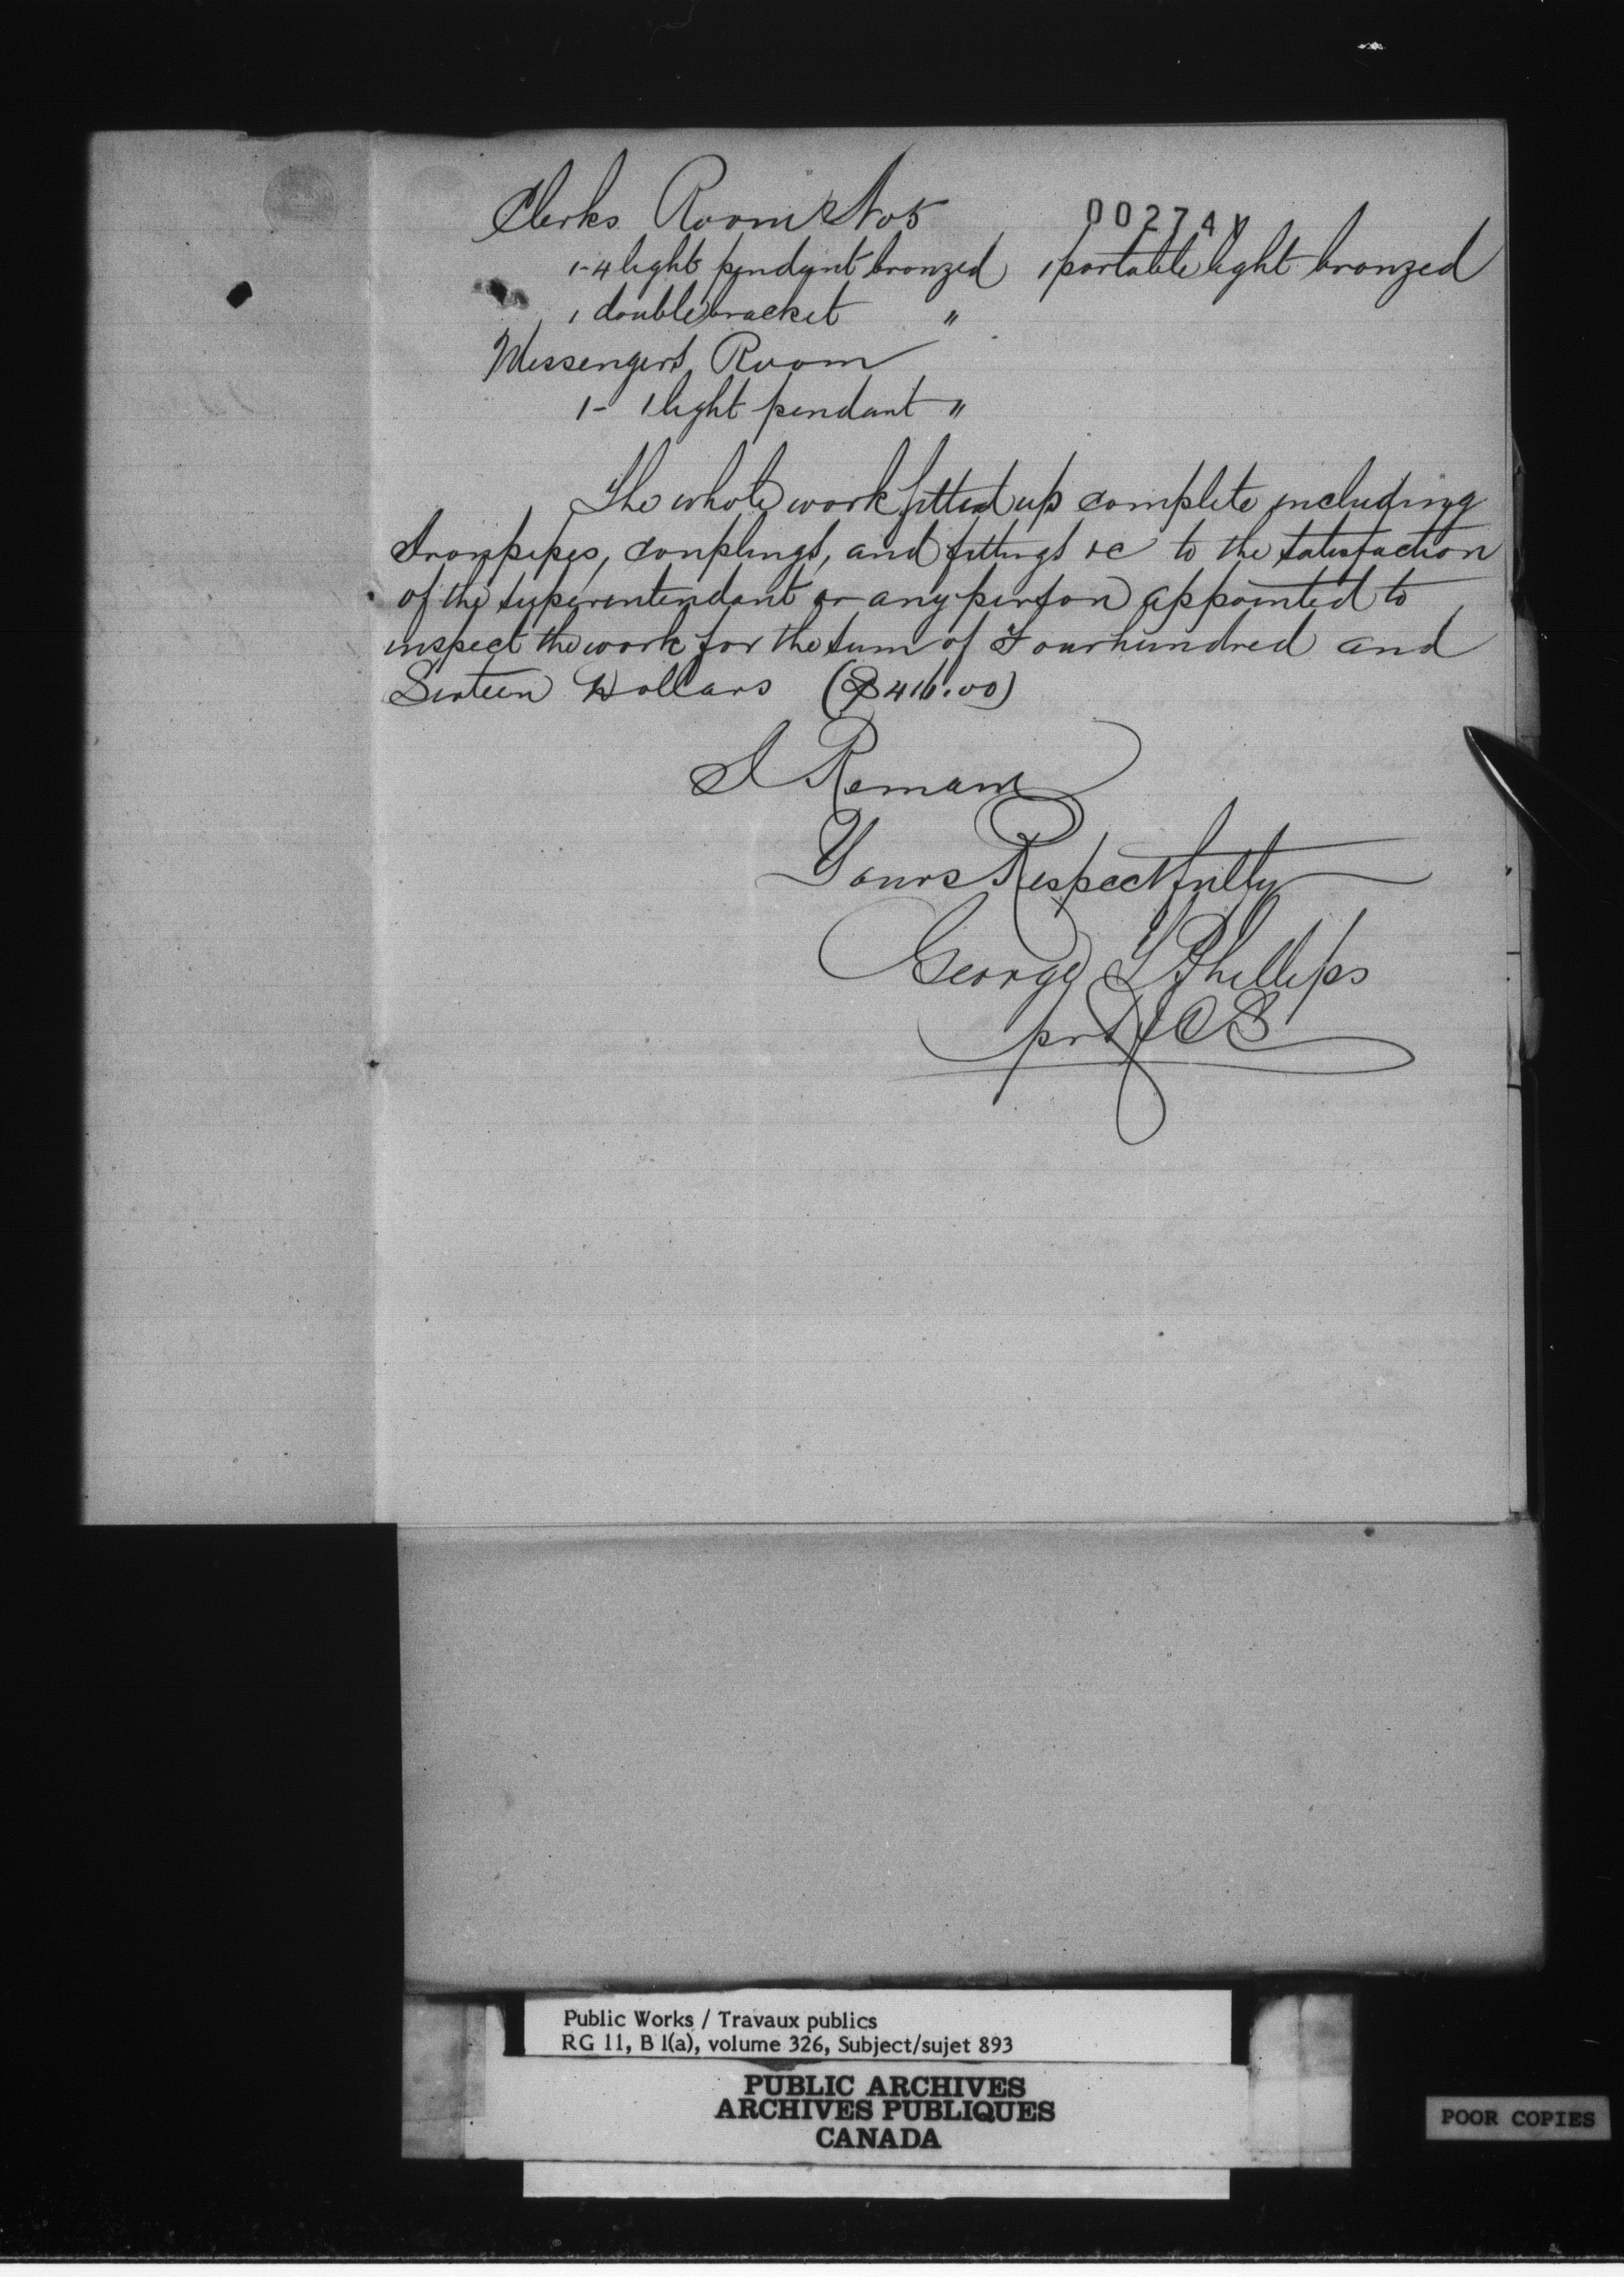 Clerks Room No 5
002741
1-4 light pendant bronzed 1 portable light bronzed
1 double bracket "
Messengers Room
1- 1 light pendant "
The whole work fitted up complete including
Ironpipes, couplings, and fittings &c to the satisfaction
of the superintendant or any person appointed to
inspect the work for the sum of Fourhundred and
Sixteen Dollars ($416.00)
I Remain
Yours Respectfully
George L Phillips
pr
Public Works / Travaux publics
RG 11, B 1(a), volume 326, Subject/sujet 893
PUBLIC ARCHIVES
ARCHIVES PUBLIQUES
CANADA
POOR COPIES